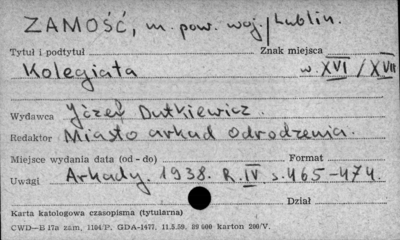 ZAMOŚĆ, m. pow. woj. Lublin.
Tytuł i podtytuł Znak miejsca
Kolegiata w. XVI / XVII
Wydawca Józef Dutkiewicz.
Redaktor Miasto arkad Odrodzenia.
Miejsce wydania data (od - do) Format
Uwagi Arkady. 1938. R. IV s. 465-474.
Dział
Karta katologowa czasopisma (tytularna)
CWD—B 17a zam, GDA-1477, 11.5.59. 280/V.